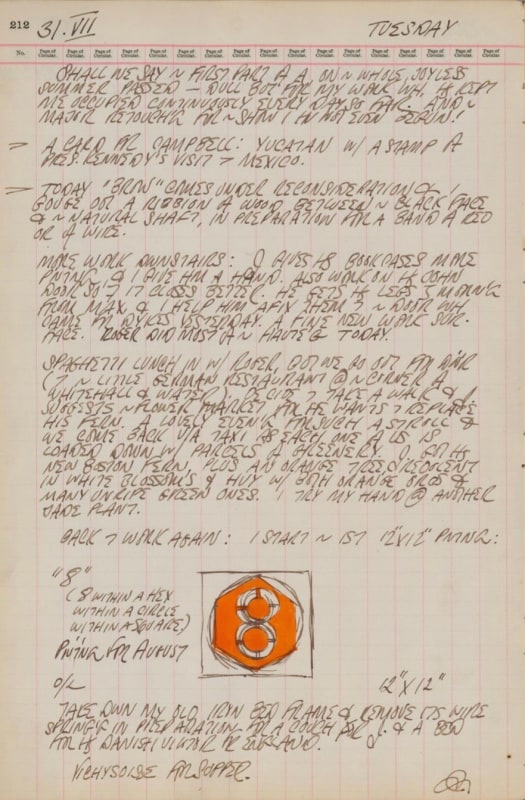 212 31.VII TUESDAY
No. Page of Circular. Page of Circular. Page of Circular. Page of Circular. Page of Circular. Page of Circular. Page of Circular. Page of Circular. Page of Circular. Page of Circular. Page of Circular. Page of Circular. Page of Circular. Page of Circular. Page of Circular. Page of Circular.
SHALL WE SAY ~ FIRST PART A A, ON ~ WHOLE, JOYLESS
SUMMER PASSED — DULL BUT FOR MY WORK WH. H KEPT
ME OCCUPIED CONTINUOUSLY EVERY DAY SO FAR. AND ~
MAJOR FOR ~ SHOW I H NOT EVEN BEGUN!
A CARD FR CAMPBELL: YUCATAN W/ A STAMP A
PRES. KENNEDY'S VISIT 7 MEXICO.
TODAY "BROW" COMES UNDER RECONSIDERATION & I
GOUGE OUT A RIBBON A WOOD BETWEEN ~ BLACK FACE
& ~ NATURAL SHAFT, IN PREPARATION FOR A BAND A RED
OR A WIRE.
MORE WORK DOWNSTAIRS: J GIVES HS BOOKCASES MORE
PNTING, & I GIVE HIM A HAND. ALSO WORK ON H JOHN
DOOR SO IT CLOSES BETTER. HE GETS H LEGS MORNG
FROM MAX & I HELP HIM AFIX THEM 7 ~ DOOR WH
CAME FM DYKES YESTERDAY. A FINE NEW WORK SUR-
FACE. ROGER DID MOST A ~ HAULG TODAY.
SPAGHETTI LUNCH IN W/ ROGER, BUT WE GO OUT FR DINR
(7 ~ LITTLE GERMAN RESTAURANT @ ~ CORNER A
WHITEHALL & WATER). DECIDE 7 TAKE A WALK & J
SUGGESTS ~ FLOWER MARKET FR HE WANTS 7 REPLACE
HIS FERN. A LOVELY EVENG FR SUCH A STROLL &
WE COME BACK VIA TAXI AS EACH ONE A US IS
LOADED DOWN W/ PARCELS A GREENERY. J. GOT HS
NEW BOSTON FERN, PLUS AN ORANGE TREE REDOLENT
IN WHITE BLOSSOMS & HVY W/ BOTH ORANGE ORBS &
MANY UNRIPE GREEN ONES. I TRY MY HAND @ ANOTHER
JADE PLANT.
BACK 7 WORK AGAIN: I START ~ 1ST 12"X12" PNTING:
"8"
(8 WITHIN A HEX
WITHIN A CIRCLE
WITHIN A SQUARE)
PNTING FOR AUGUST
8
O/L 12" X 12"
TAKE DOWN MY OLD IRON BED FRAME & REMOVE ITS WIRE
SPRINGS IN PREPARATION FOR A COUCH FOR J. & A BED
FR HS DANISH VISITOR FR ENGLAND.
VICHYSOISE FR SUPPER.